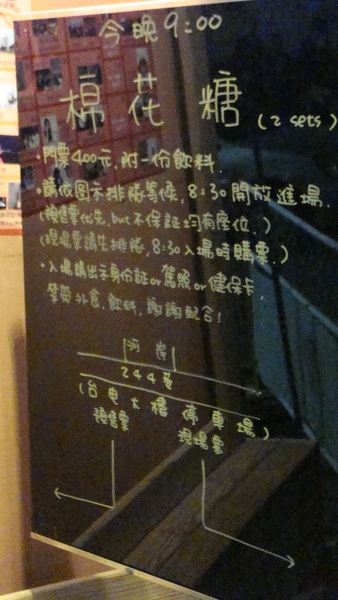 今晚9:00
棉花糖 (2 sets)
·門票400元,附一份飲料.
·請依图示排隊等候,8:30開放進場.
(預售票优先,but不保証均有座位.)
(現場票請先排隊,8:30入場時購票.)
·入場請出示身份証or駕照or健保卡,
禁帶外食.飲料,謝謝配合!
河岸
244巷
(台電大樓停車場)
預售票
現場票